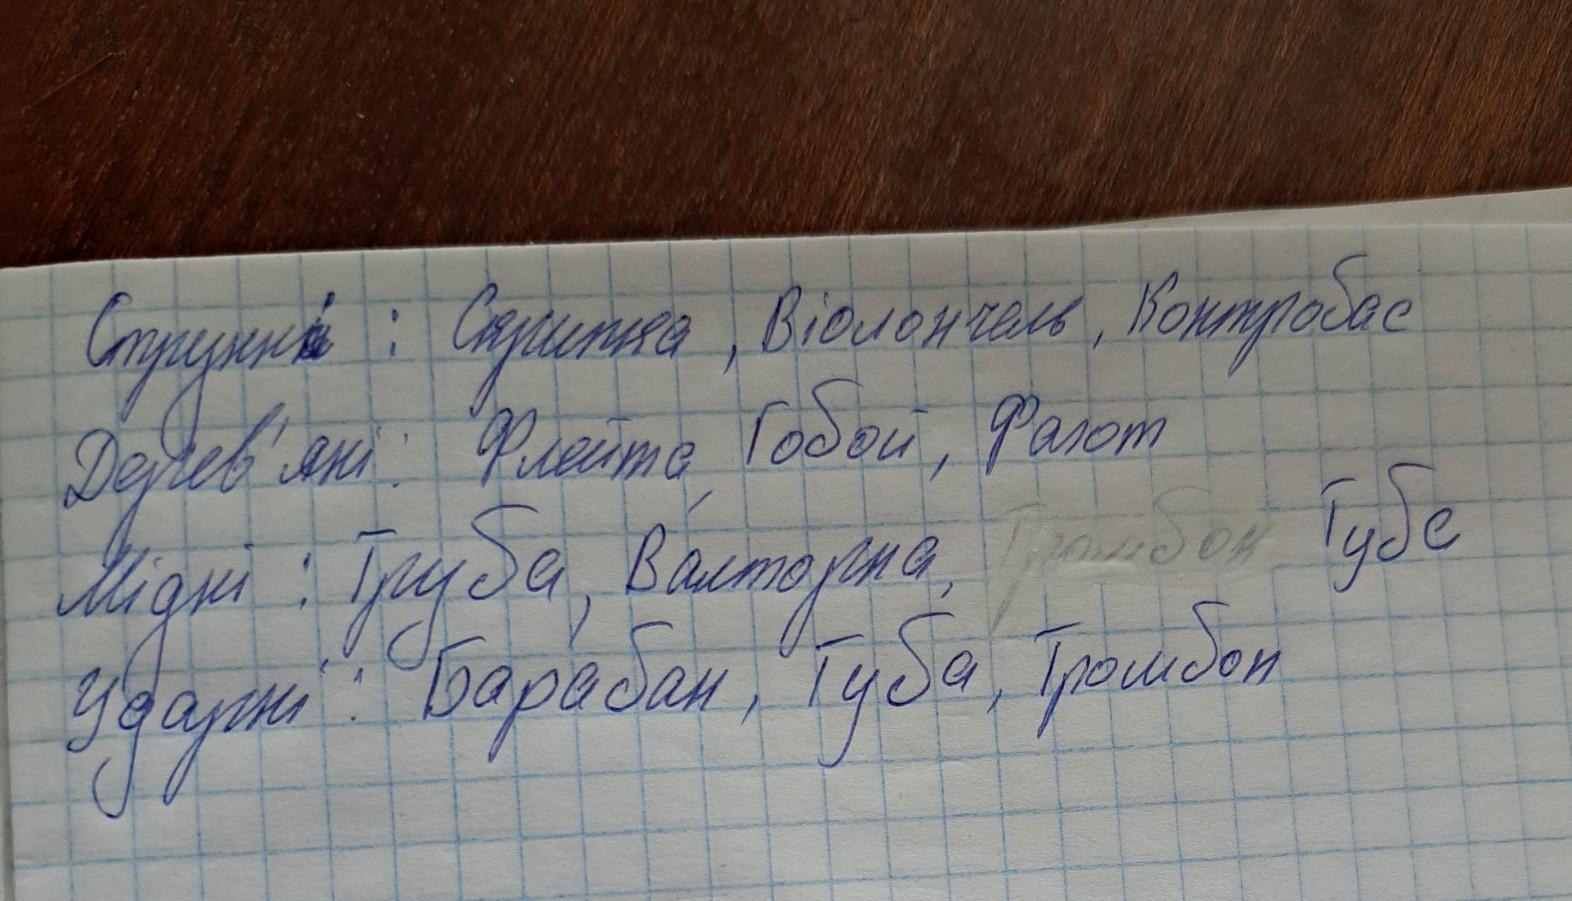 Струнні : Скрипка, Віолончель, Контробас
Дерев'яні : Флейта, Гобой, Фагот
Мідні : Труба, Валторна, Тромбон Туба
Ударні : Барабан, Туба, Тромбон